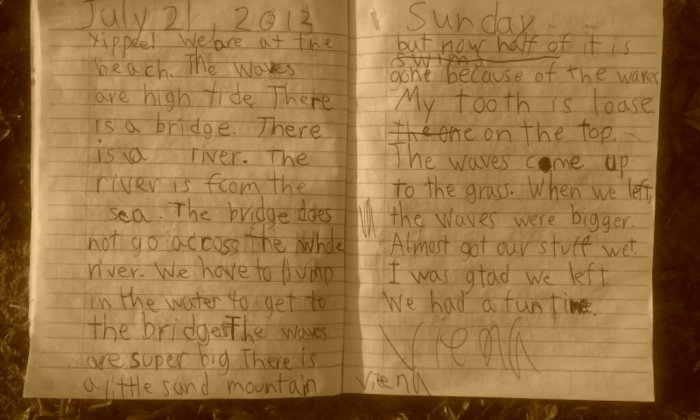 July 21, 2013
Yippee! We are at the
beach. The waves
are high tide. There
is a bridge. There
is a river. The
river is from the
sea. The bridge does
not go across the whole
river. We have to jump
in the water to get to
the bridge. The waves
are super big. There is
a little sand mountain
Sunday
but now half of it is
gone because of the waves
My tooth is loase
the one on the top.
The waves come up
to the grass. When we left,
the waves were bigger.
Almost got our stuff wet.
I was glad we left.
We had a fun time.
Viena
Viena